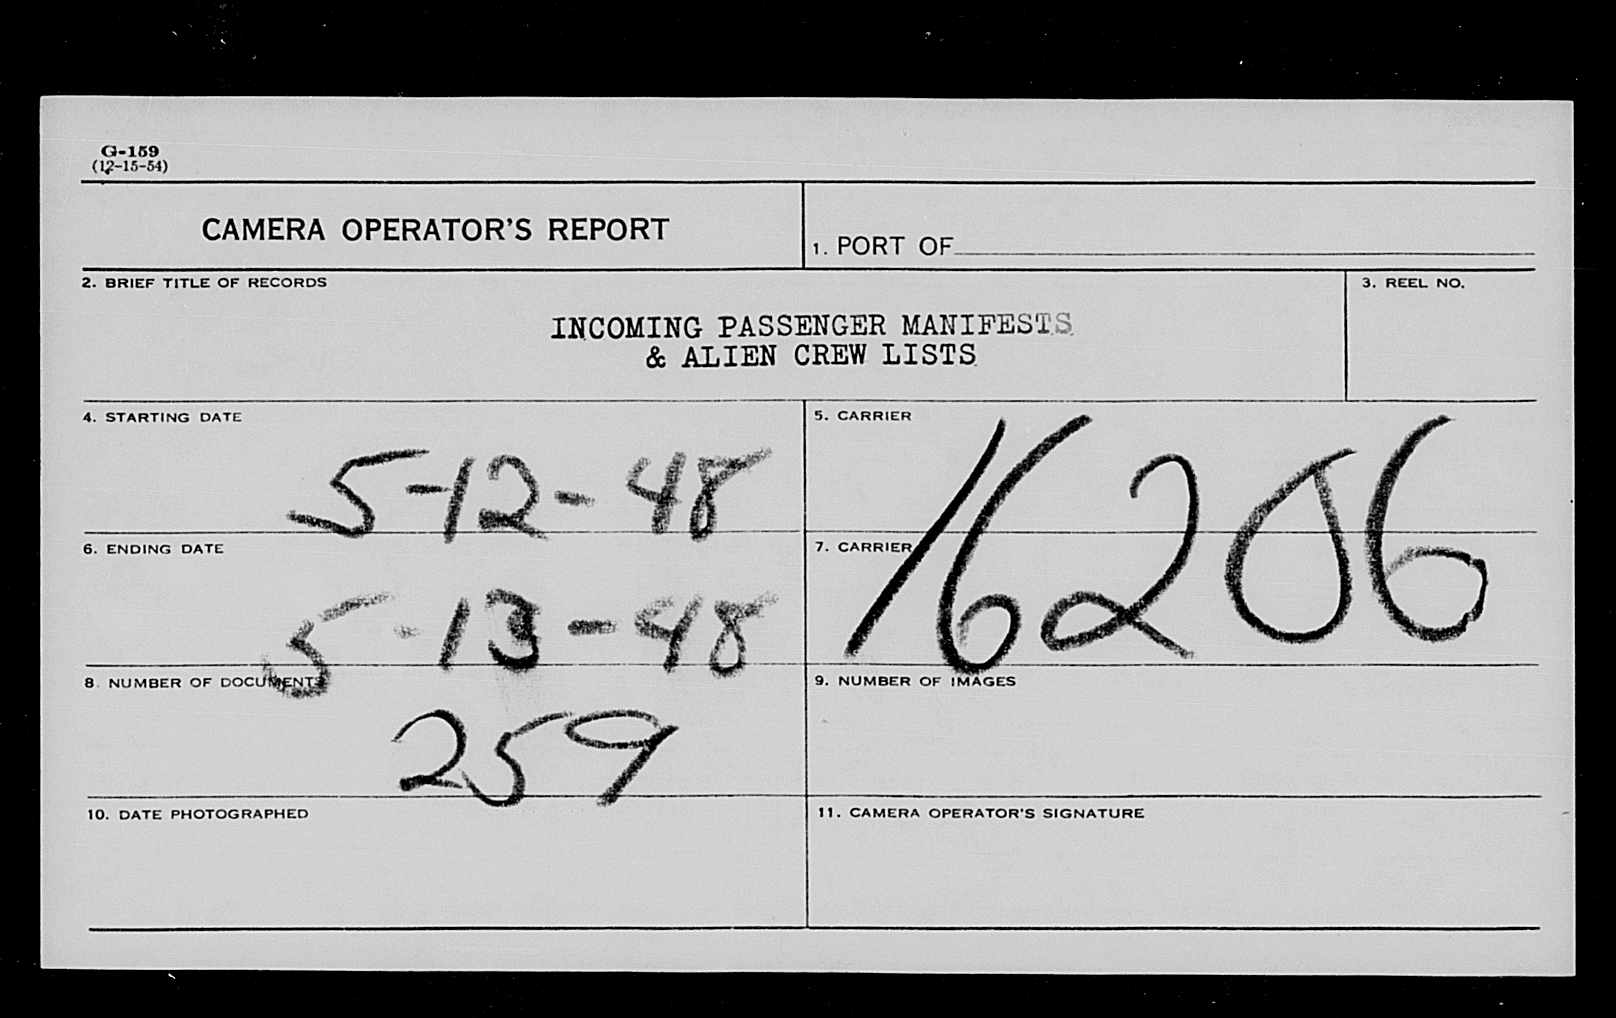 G-159
(12-15-54)
CAMERA OPERATOR'S REPORT
1. PORT OF
2. BRIEF TITLE OF RECORDS
INCOMING PASSENGER MANIFESTS
& ALIEN CREW LISTS
3. REEL NO.
4. STARTING DATE
5-12-48
5. CARRIER
16206
6. ENDING DATE
5-13-48
7. CARRIER
8. NUMBER OF DOCUMENTS
259
9. NUMBER OF IMAGES
10. DATE PHOTOGRAPHED
11. CAMERA OPERATOR'S SIGNATURE